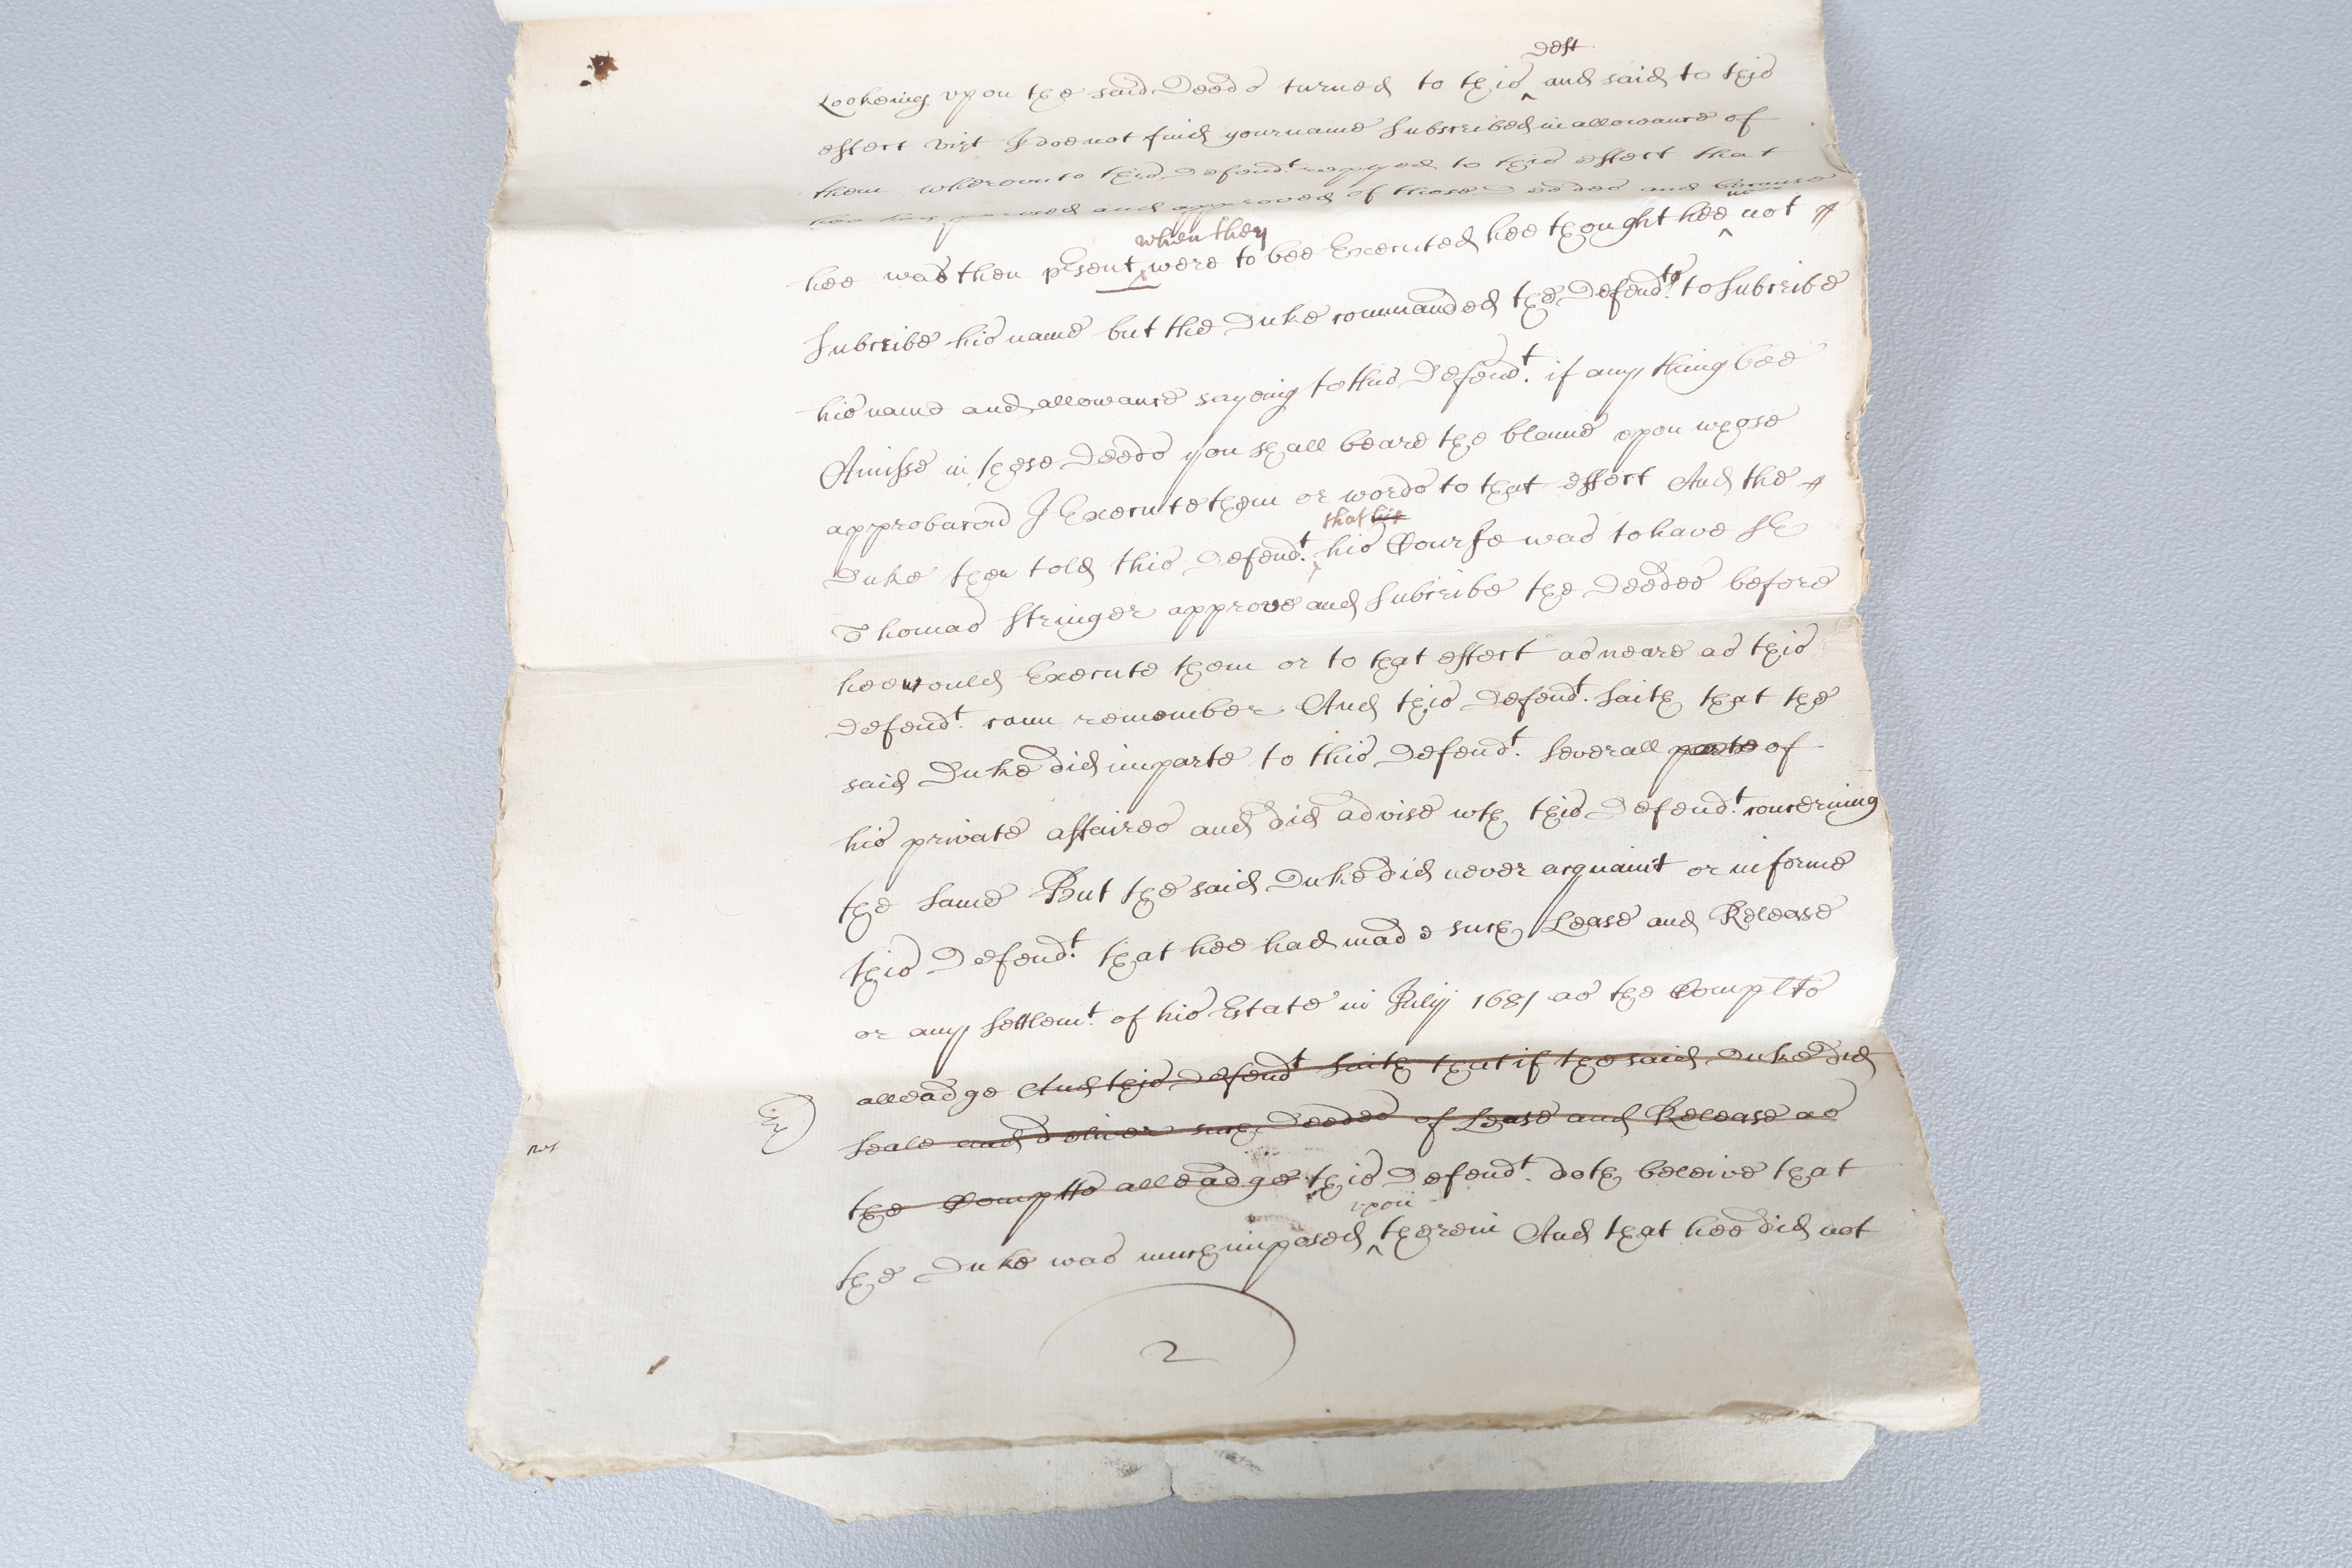 Lookeing vpon the said Deeds turned to this ^deft and said to this
effect vizt I doe not find your name Subscribed in allowance of
them wherevnto this Defendt. replyed to this effect that
hee had perused and approved of those Deedes and because
hee was then pʳsent ^when they were to bee Executed hee thought hee ^need not
Subscribe his name but the Duke commanded the Defendt. to Subscribe
his name and allowance sayeing to this Defendt. if any thing bee
Amisse in these Deeds you shall beare the blame vpon whose
approbacon I Execute them or words to that effect And the
Duke then told this Defendt. ^that his his Course was to have Sr
Thomas Stringer approve and Subscribe the Deedes before
hee would Execute them or to that effect as neare as this
Defendt. cann remember And this Defendt. Saith that the
said Duke did imparte to this Defendt. Severall parte of
his private affaires and did advise wth this Defendt. concerning
the Same But the said Duke did never acquaint or informe
this Defendt. that hee had made such Lease and Release
or any Settlemt. of his Estate in July 1681 as the Complts
alleadge And this Defendt Saith that if the said Duke did
Seale and deliver such Deedes of Lease and Release as
the Complts alleadge this Defendt. doth beleive that
the Duke was much imposed ^vpon therein And that hee did not
2